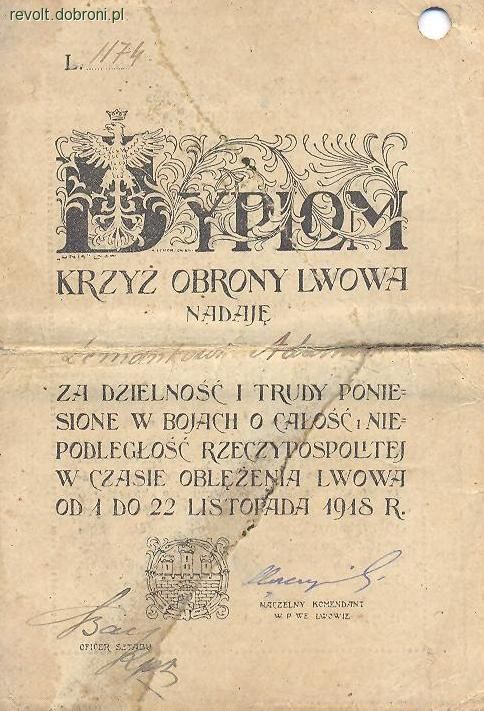 revolt.dobroni.pl
L. 1174
DYPLOM
"UNIA" LWÓW
KRZYŻ OBRONY LWOWA
NADAJĘ
Adamowi
ZA DZIELNOŚĆ I TRUDY PONIE=
SIONE W BOJACH O CAŁOŚĆ I NIE=
PODLEGŁOŚĆ RZECZYPOSPOLITEJ
W CZASIE OBLĘŻENIA LWOWA
OD 1 DO 22 LISTOPADA 1918 R.
NACZELNY KOMENDANT
W.P. WE LWOWIE
OFICER SZTABU